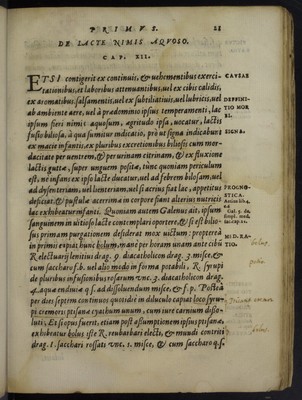 PRIMVS. 28
DE LACTE NIMIS AQVOSO.
CAP. XII.
ETSI contigerit ex continuis, & uehementibus exerci-
tationibus, et laboribus attenuantibus, uel ex cibis calidis,
ex aromatibus. salsamentis, uel ex subtiliatiuis, uel lubricis, uel
ab ambiente aere, uel à prædominio ipsus temperamenti, lac
ipsum fieri nimis aquosum, agritudo ipsa, uocatur, lactis
fusio biliosa, à qua sumitur indicatio, prò ut signa indicabunt
ex macie infantis, ex pluribus excretionibus biliosis cum mor-
dacitate per uentrem, & per urinam citrinam, & ex fluxione
lactis guttæ, super unguem posita, tunc quoniam periculum
est, ne infans ex ipso lacte ducatur, uel ad febrem bilosam, uel
ad dysenteriam, uel lienteriam, uel si acrius fiat lac, appetitus
desiciat, & pustulæ acerrimæ in corpore fiant alterius nutricis
lac exhibeatur infanti. Quoniam autem Galenus ait, ipsum
sanguinem in uitioso lacte contemplari oportere, & si est bilio-
sus primam expurgationem desiderat mox uictum: propterea
in primis expiat hunc bilum, manè per horam unam ante cibũ
R. electuarij lenitiui dreg. 9. diacatholicon dreg. 3. misce, &
cum saccharo f.b. uel alio modo in forma potabili, R. syrupi
de pluribus infusionibus rosarum vnc. 3. diacatholicon dreg.
4. aquæ endiuiæ q.s. ad dissoluendum misce, & f.p. Postea
per dies septem continuos quotidiè in diluculo capiat loco syru-
pi cremoris ptisanæ cyathum unum, cum iure carnium disso-
lutus. Et si opus fuerit, etiam post assumptionem ipsius ptisanæ,
exhibeatur bolus iste R. reubarbari electi, & mundè contriti
dreg. 1. sacchari rossati vnc. 1. misce, & cum saccharo q.s.
CAVSAE
DIFFINI-
TIO MOR
BI.
SIGNA.
PROGNO-
STICA.
MED. RA-
TIO.
bolus.
potio.
bolus.